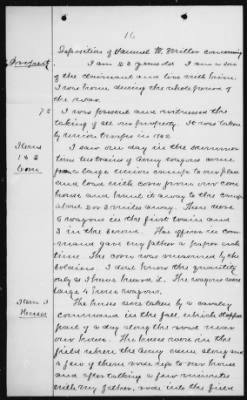 16
Deposition of Samuel W. Miller concerning
Property
I am 23 years old. I am a son
of the claimant and live with him.
I was home during the whole period of
the war.
72
I was present and witnessed the
taking of all the property. It was taken
by Union troops in 1862.
Items
1 & 2
Corn
I saw one day in the summer
time two trains of army wagons come
from a large Union camp to our place
and load with corn from our corn
house and haul it away to the camp
about 2 or 3 miles away. There were
6 wagons in the first train and
3 in the second. The officer in com-
mand gave my father a paper each
time. The corn was measured by the
soldiers. I dont know the quantity
only as I have heard it. The wagons were
large 4 horse wagons.
Item 3
Horses
The horse were taken by a cavalry
command in the fall, which stopped
part of a day along the road near
our house. The horses were in the
field where the army came along and
a few of them rode up to our house
and after talking a few minutes
with my father, rode into the field